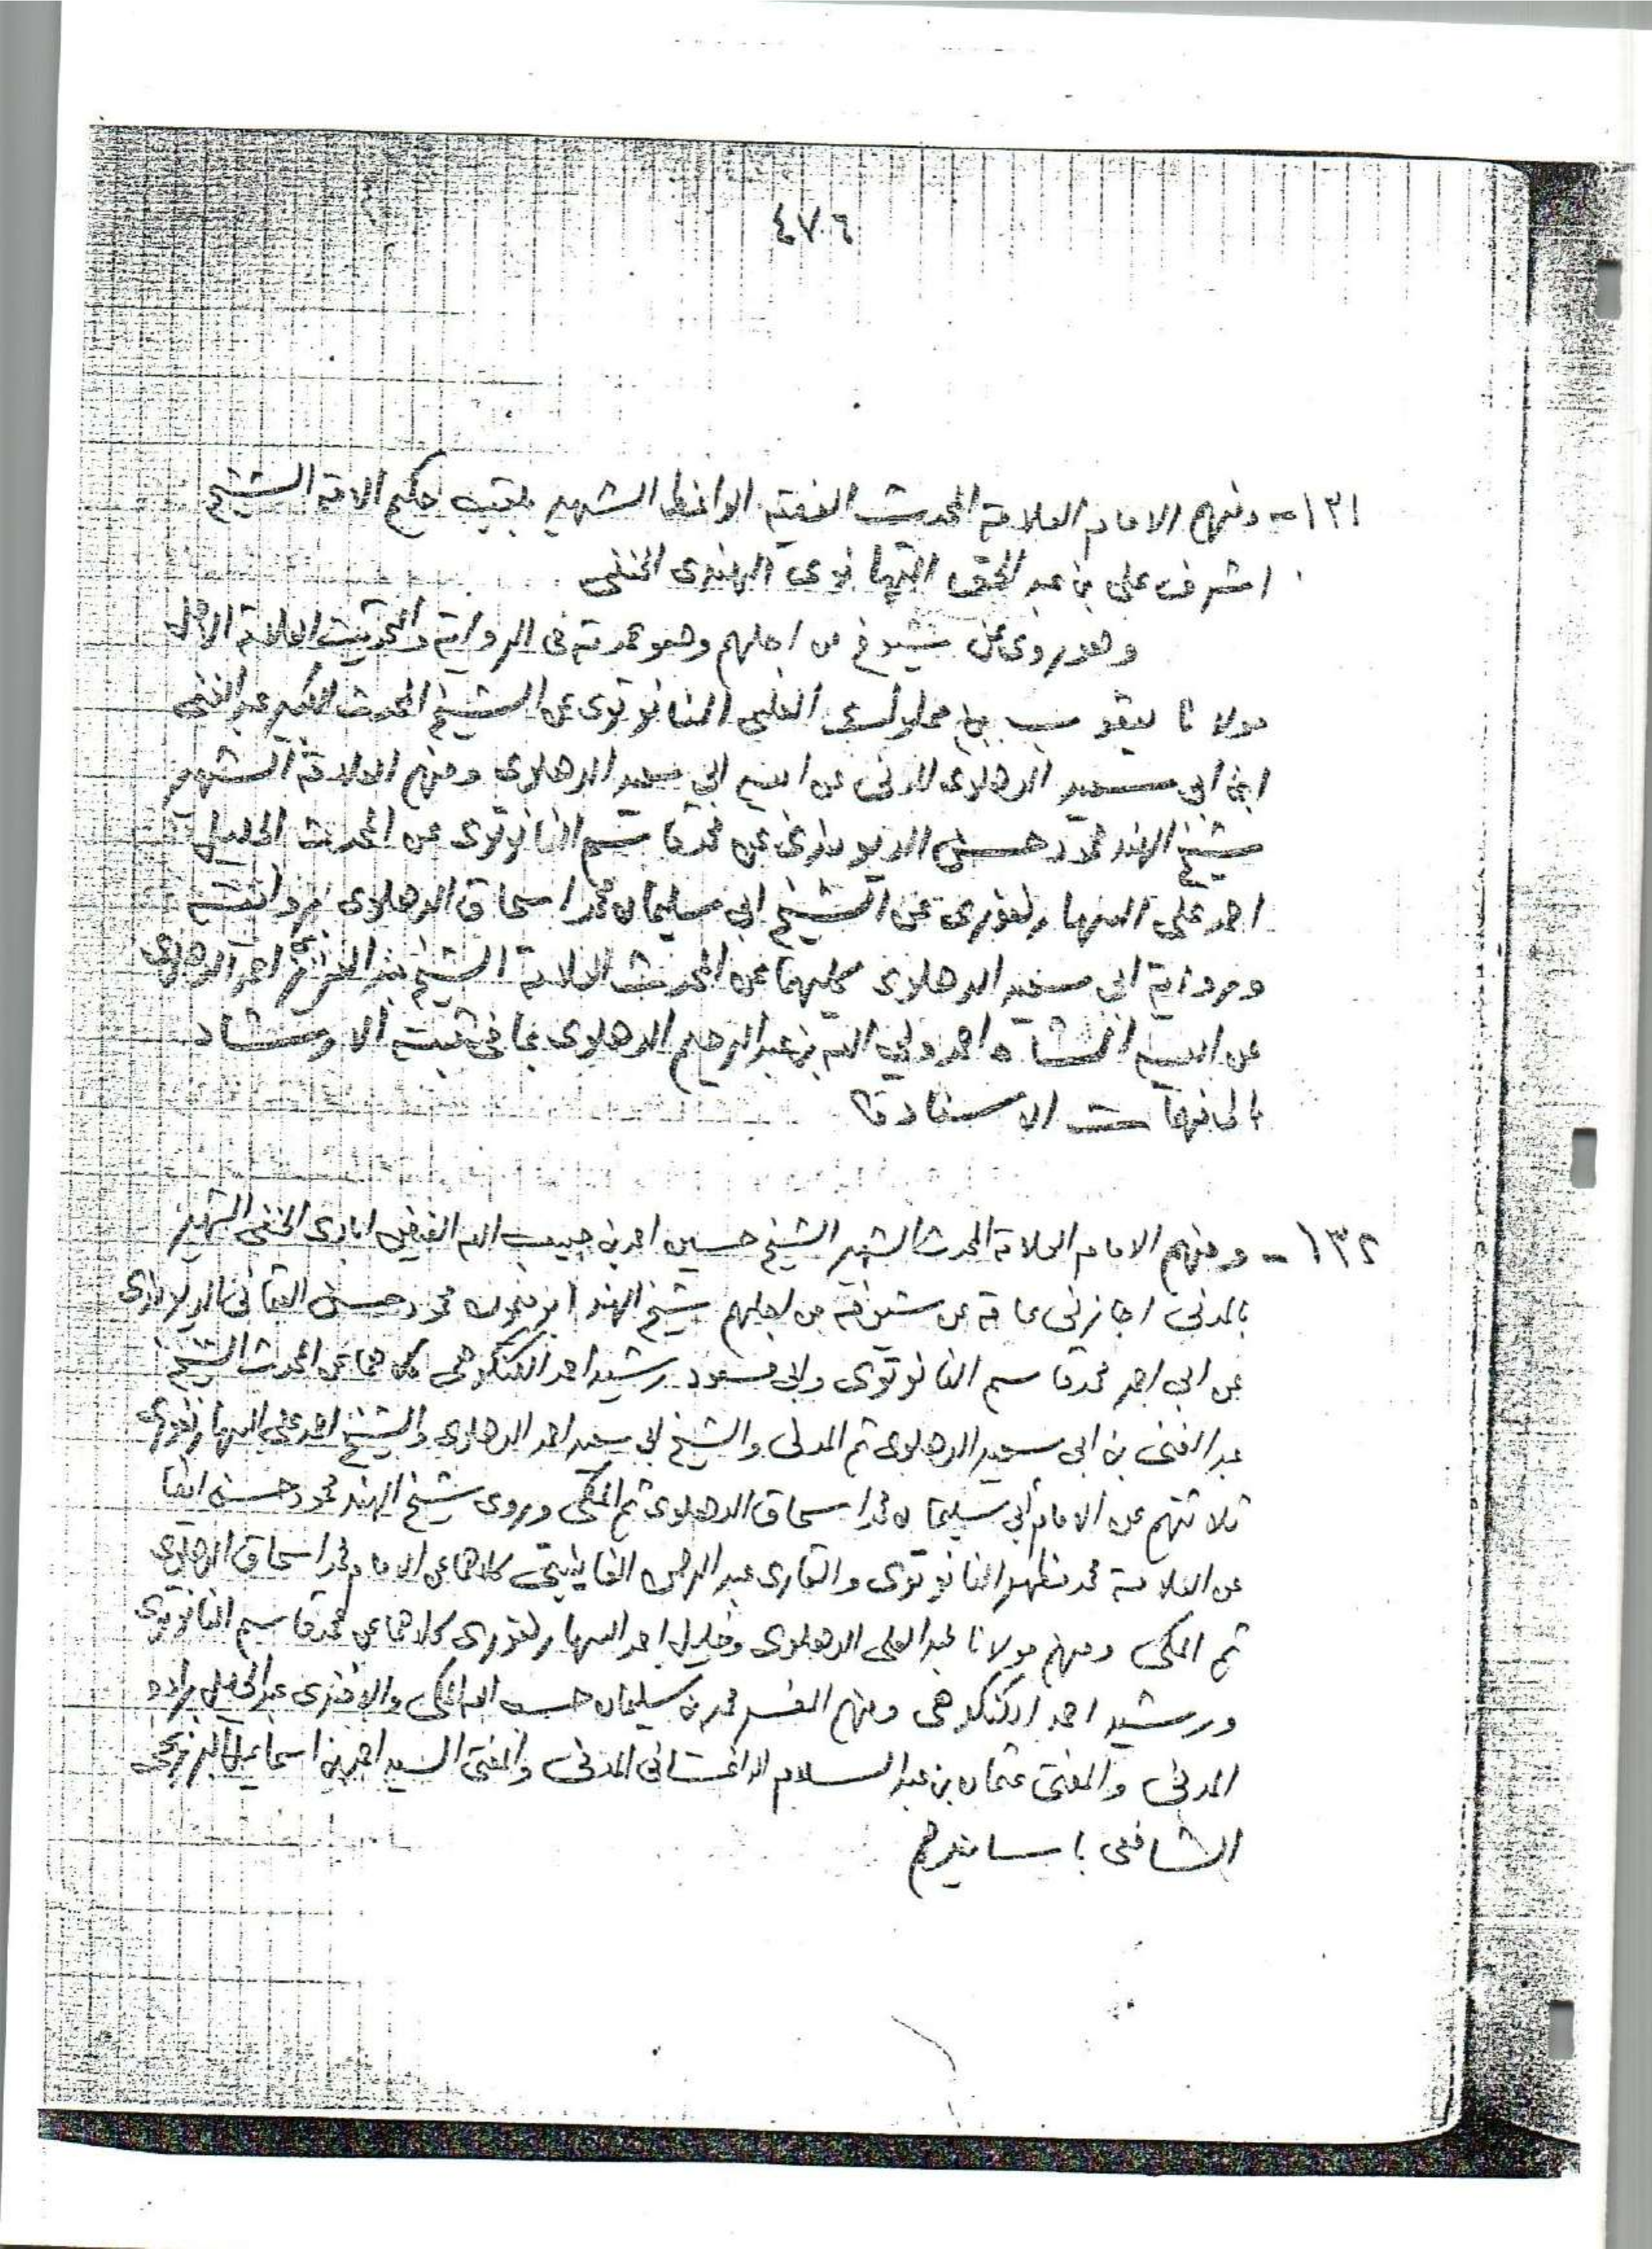 ٤٧٦
١٣١ - ومنهم الامام العلامة المحدث الفقيه الواعظ الشهير بلقب حكيم الامة الشيخ
اشرف على بن عبد الحق التهانوى الهندى الحنفى
وهو روى عن شيوخ من اجلهم وهو عمدته فى الرواية والتحديث العلامة الاجل
مولانا يعقوب بن مملوك العلى النانوتوى عن الشيخ المحدث الكبير عبد الغنى
ابن ابى سعيد الدهلوى المدنى عن ابيه ابي سعيد الدهلوى ومنهم العلامة الشهير
شيخ الهند محمود حسن الديوبندى عن محمد قاسم النانوتوى عن المحدث الجليل
احمد على السهارنفورى عن الشيخ ابى سليمان محمد اسحاق الدهلوى بروايته
وبرواية ابى سعيد الدهلوى كليهما عن المحدث العلامة الشيخ عبد العزيز بن احمد الدهلوى
عن ابيه الشاه احمد ولي الله بن عبد الرحيم الدهلوى بما فى ثبته الارشاد
الى مهمات الاسناد
١٣٢ - ومنهم الامام العلامة المحدث الشهير الشيخ حسين احمد بن حبيب الله الفيض ابادى الحنفى الشهير
بالمدنى اجازنى عامة عن شيوخه من اجلهم شيخ الهند محمود حسن العثمانى الديوبندى
عن ابي احمد محمد قاسم النانوتوى وابى مسعود رشيد احمد الكنكوهى كلاهما عن المحدث الشيخ
عبد الغنى بن ابى سعيد الدهلوى ثم المدنى والشيخ ابى سعيد احمد الدهلوى والشيخ احمد على السهارنفورى
ثلاثتهم عن الامام أبى سليمان محمد اسحاق الدهلوى ثم المكى وروى شيخ الهند محمود حسن ايضا
عن العلامة محمد مظهر النانوتوى والقارى عبد الرحمن الفانيبتى كلاهما عن الامام محمد اسحاق الدهلوى
ثم المكى ومنهم مولانا عبد العلى الدهلوى وخليل احمد السهارنفورى كلاهما عن محمد قاسم النانوتوى
ورشيد احمد الكنكوهى ومنهم المفسر محمد بن سليمان حسب الله المكى والافندى عبد الجليل براده
المدنى والمفتى عثمان بن عبد السلام الداغستانى المدنى والمفتى السيد احمد بن اسماعيل البرزنجى
الشافعى باسانيدهم